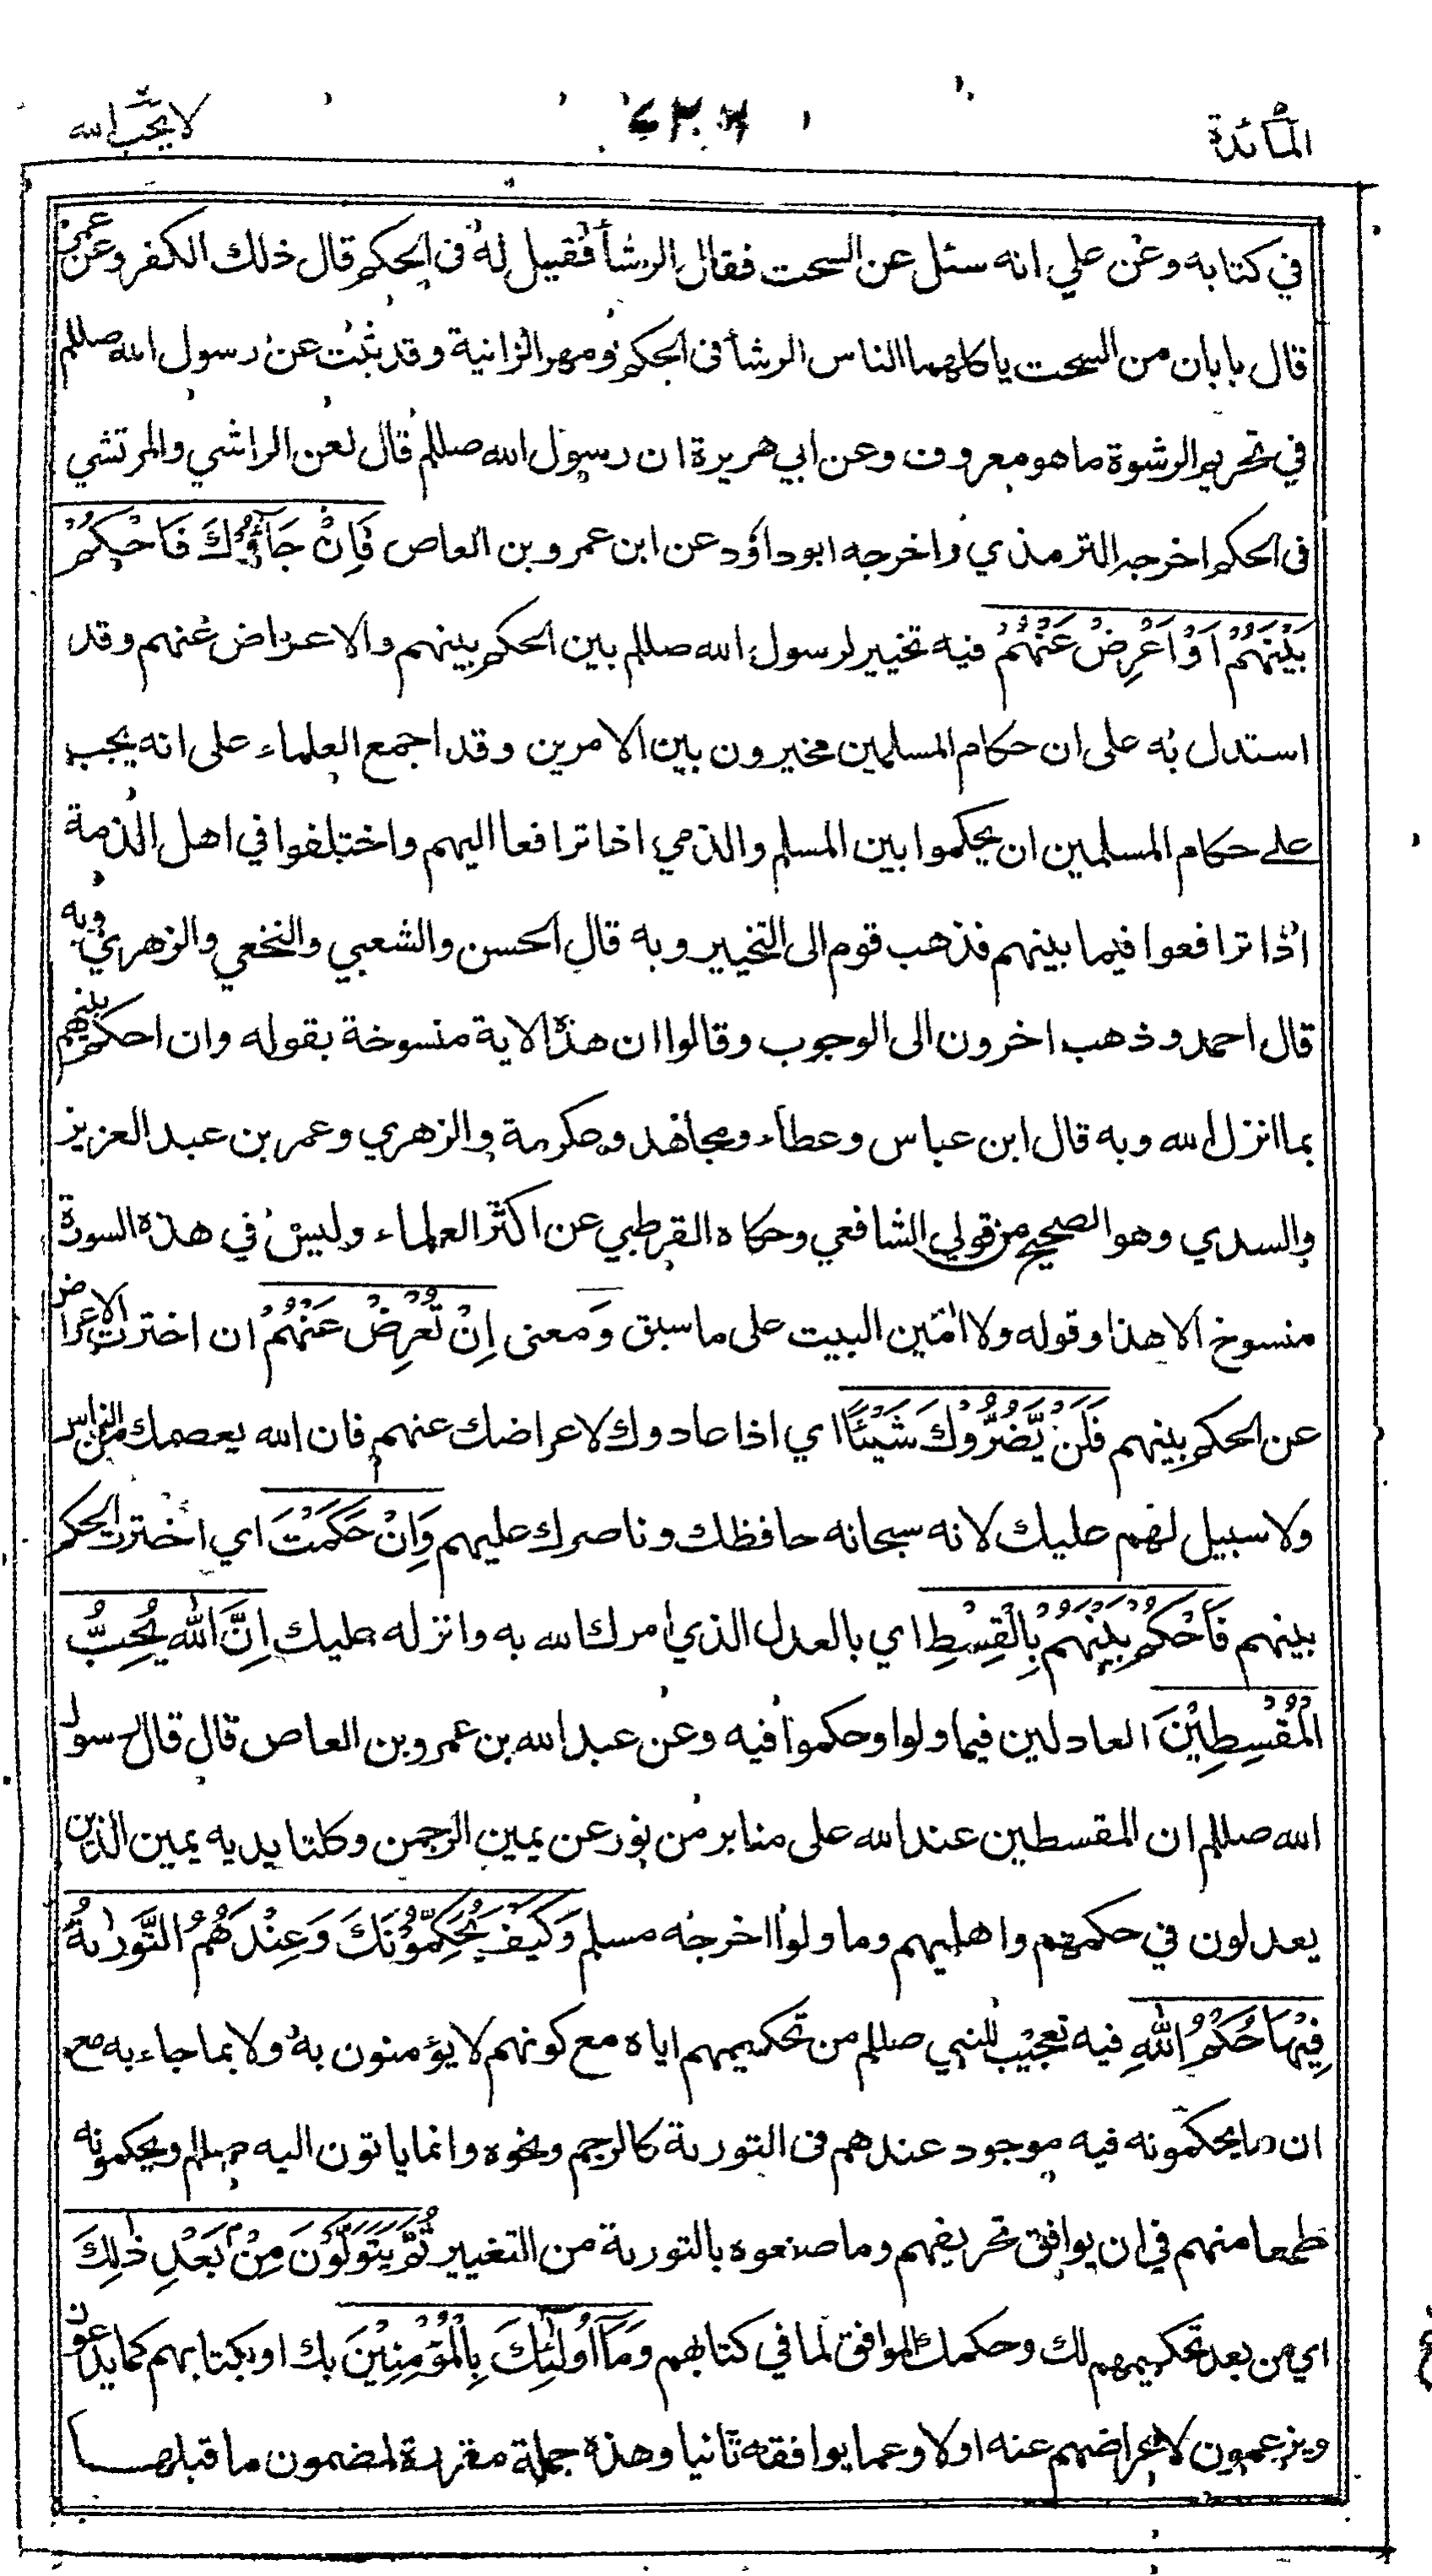 المائدة
لا يحب الله
في كتابه وعن علي انه سئل عن السحت فقال الرشا فقيل له فى الحكم قال ذلك الكفر وعن عمر
قال بابان من السحت ياكلهما الناس الرشا فى الحكم ومهر الزانية وقد ثبت عن رسول الله صللم
في تحريم الرشوة ما هو معروف وعن ابي هريرة ان رسول الله صللم قال لعن الراشي والمرتشي
فى الحكم اخرجه الترمذي واخرجه ابوداؤد عن ابن عمرو بن العاص فَاِنْ جَآؤُوْكَ فَاحْكُمْ
بَيْنَهُمْ اَوْ اَعْرِضْ عَنْهُمْ فيه تخيير لرسول الله صللم بين الحكم بينهم والاعراض عنهم وقد
استدل به على ان حكام المسلمين مخيرون بين الامرين وقد اجمع العلماء على انه يجب
على حكام المسلمين ان يحكموا بين المسلم والذمي اذا ترافعا اليهم واختلفوا في اهل الذمة
اذا ترافعوا فيما بينهم فذهب قوم الى التخيير وبه قال الحسن والشعبي والنخعي والزهري وبه
قال احمد وذهب اخرون الى الوجوب وقالوا ان هذه الاية منسوخة بقوله وان احكم بينهم
بما انزل الله وبه قال ابن عباس وعطاء ومجاهد وعكرمة والزهري وعمر بن عبد العزيز
والسدي وهو الصحيح من قولي الشافعي وحكاه القرطبي عن اكثر العلماء وليس في هذه السورة
منسوخ الا هذا وقوله ولا امّين البيت على ما سبق وَمعنى اِنْ تُعْرِضْ عَنْهُمْ ان اخترت الاعراض
عن الحكم بينهم فَلَنْ يَّضُرُّوْكَ شَيْئًا اي اذا عادوك لاعراضك عنهم فان الله يعصمك من الناس
ولا سبيل لهم عليك لانه سبحانه حافظك وناصرك عليهم وَاِنْ حَكَمْتَ اي اخترت الحكم
بينهم فَاحْكُمْ بَيْنَهُمْ بِالْقِسْطِ اي بالعدل الذي امرك الله به وانزله عليك اِنَّ اللهَ يُحِبُّ
الْمُقْسِطِيْنَ العادلين فيما ولوا وحكموا فيه وعن عبد الله بن عمرو بن العاص قال قال رسول
الله صللم ان المقسطين عند الله على منابر من نور عن يمين الرحمن وكلتا يديه يمين الذين
يعدلون في حكمهم واهليهم وما ولوا اخرجه مسلم وَكَيْفَ يُحَكِّمُوْنَكَ وَعِنْدَهُمُ التَّوْرٰىةُ
فِيْهَا حُكْمُ اللهِ فيه تعجيب للنبي صللم من تحكيمهم اياه مع كونهم لا يؤمنون به ولا بما جاء به مع
ان ما يحكمونه فيه موجود عندهم فى التورىة كالرجم ونحوه وانما ياتون اليه صللم ويحكمونه
طمعا منهم في ان يوافق تحريفهم وما صنعوه بالتورىة من التغيير ثُمَّ يَتَوَلَّوْنَ مِنْۢ بَعْدِ ذٰلِكَ
اي من بعد تحكيمهم لك وحكمك الموافق لما في كتابهم وَمَآ اُولٰٓئِكَ بِالْمُؤْمِنِيْنَ بك او بكتابهم كما يدعون
ويزعمون لاعراضهم عنه اولا وعما يوافقه ثانيا وهذه جملة مقررة لمضمون ما قبلها